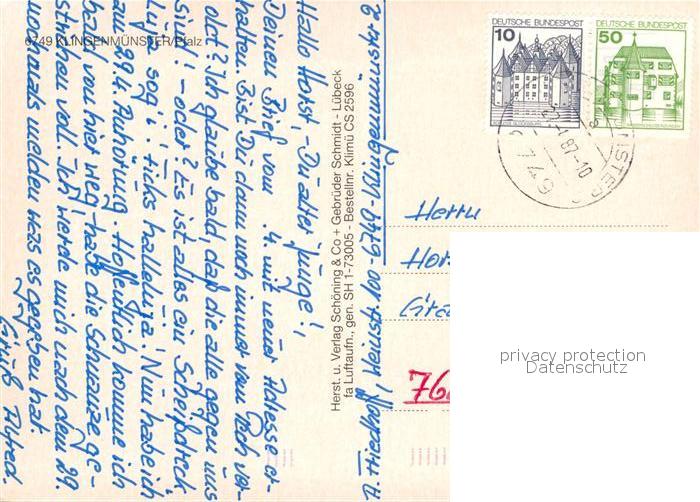 6749 KLINGENMÜNSTER/Pfalz
Hallo Horst, Du alter Junge!,
Deinen Brief vom 4. mit neuer Adresse er-
halten. Bist Du denn noch immer vom Pech ver-
folgt? Ich glaube bald, daß die alle gegen uns
sind! - oder? Es ist alles ein Scheißdreck
Luis sog i! Ficks halleluja! Nun habe ich
am 29.4. Anhörung. Hoffentlich komme ich
bald von hier weg - habe die Schnauze ge-
strichen voll. Ich werde mich nach dem 29.
nochmals melden was es gegeben hat.
Gruß Alfred.
Herst. u. Verlag Schöning & Co + Gebrüder Schmidt - Lübeck
fa Luftaufn., gen. SH 1-73005 - Bestellnr. Klimü CS 2596
Weinstr. 100 - 6749 Klingenmünster 2
DEUTSCHE BUNDESPOST
10
DEUTSCHE BUNDESPOST
50
87-10
6749
Herrn
Hor
76
privacy protection
Datenschutz